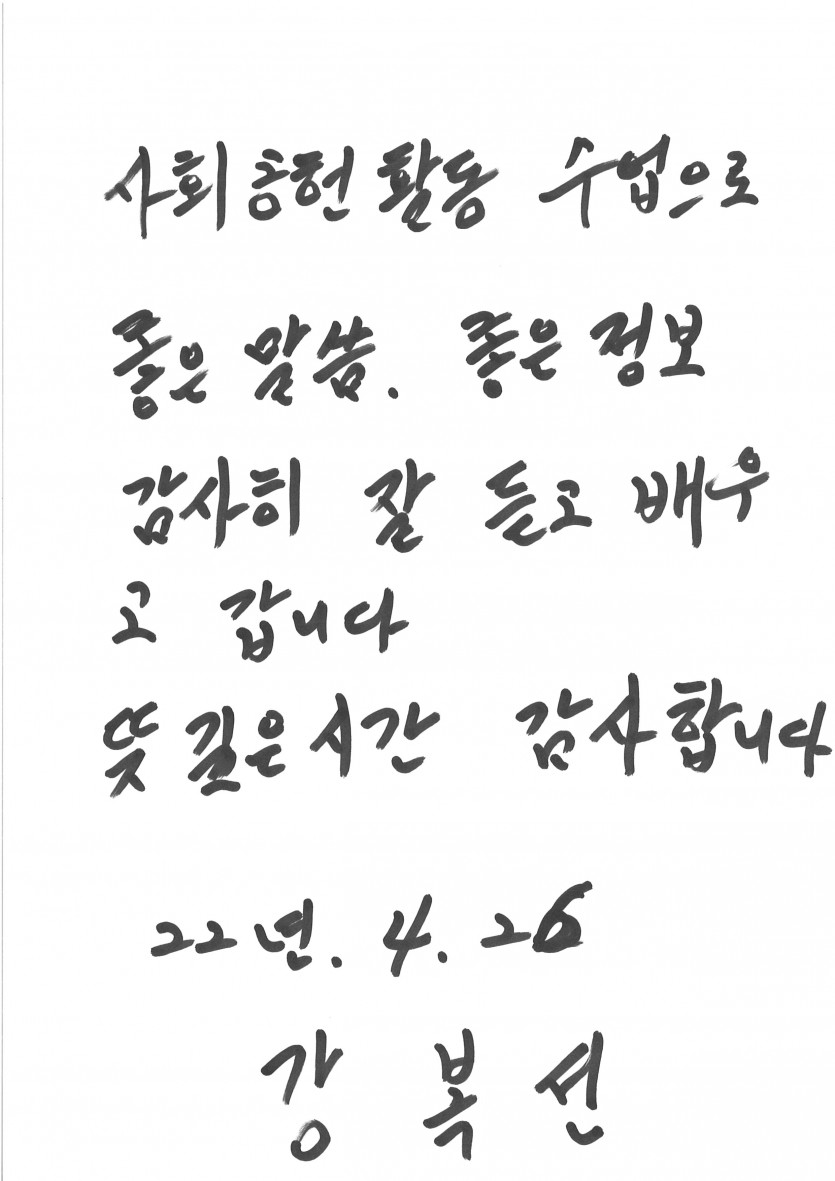 사회공헌 활동 수업으로
좋은 말씀. 좋은 정보
감사히 잘 듣고 배우
고 갑니다
뜻 깊은 시간 감사합니다
22년. 4. 26
강 복 선